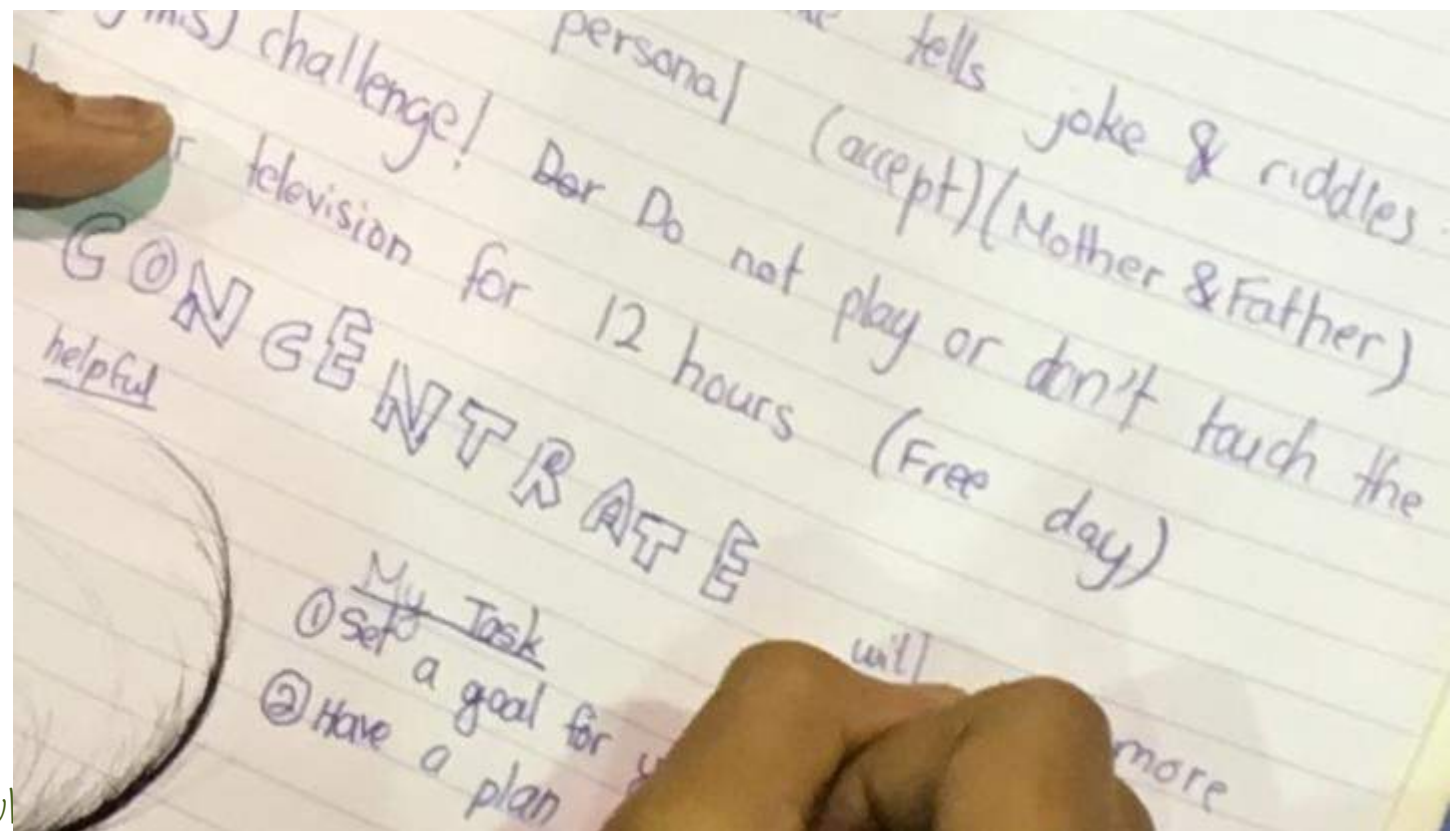 tells joke & riddles.
personal (accept)(Mother & Father)
challenge! Dor Do not play or don't touch the
television for 12 hours (Free day)
CONCENTRATE
helpful
My Task
① Set a goal for
will
② Have a plan
more